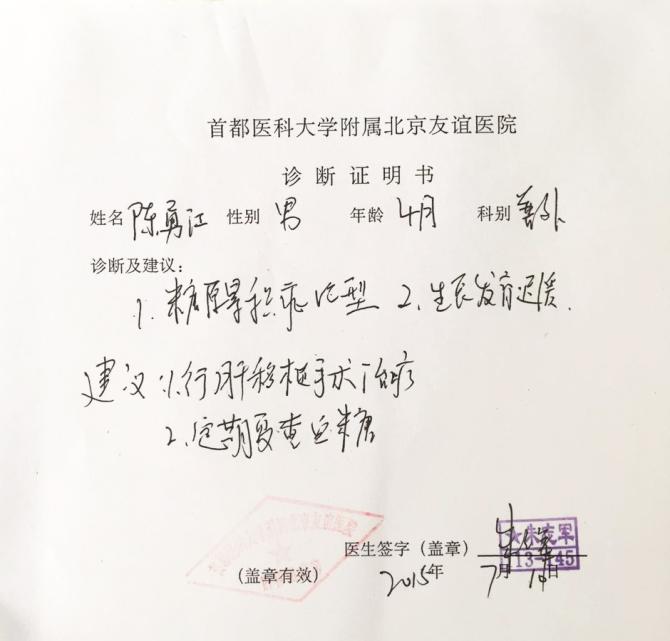 首都医科大学附属北京友谊医院
诊断证明书
姓名 陈勇江 性别 男 年龄 4月 科别 普外
诊断及建议:
1、糖原累积症 Ib型 2、生长发育迟缓.
建议 1、行肝移植手术治疗
2、定期复查血糖
医生签字(盖章) 朱志军
13-145
(盖章有效) 2015年 7月 14日
北京友谊医院